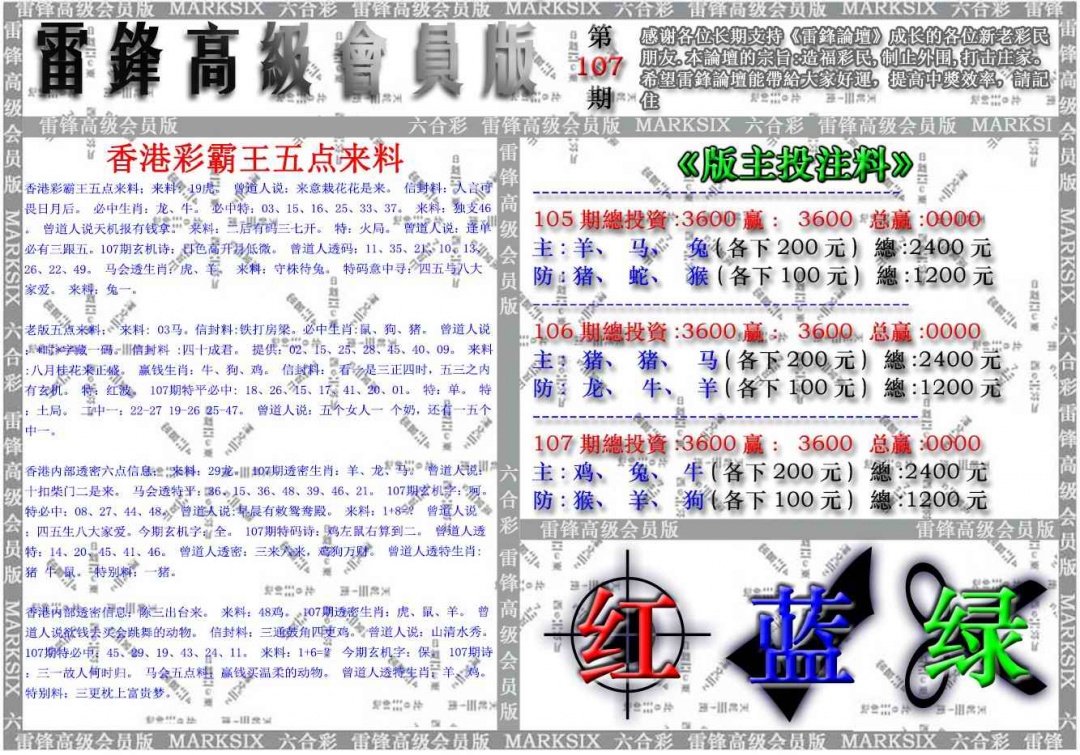 雷锋高级会员版 MARKSIX 六合彩 雷锋高级会员版 MARKSIX 六合彩 雷锋高级会员版 MARKSIX 六合彩 雷锋
雷鋒高級會員版
第
107
期
感谢各位长期支持《雷鋒論壇》成长的各位新老彩民
朋友.本論壇的宗旨:造福彩民,制止外围,打击庄家。
希望雷鋒論壇能帶給大家好運，提高中獎效率，請記
住
雷锋高级会员版 六合彩 雷锋高级会员版 MARKSIX 六合彩 雷锋高级会员版 MARKSI
香港彩霸王五点来料
香港彩霸王五点来料：来料：19虎。 曾道人说：来意栽花花是来。 信封料：人言可
畏日月后。 必中生肖：龙、牛。 必中特：03、15、16、25、33、37。 来料：独支46
。 曾道人说天机报有钱拿。 来料：二后有码三七开。 特：火局。 曾道人说：逢单
必有三跟五。107期玄机诗：白色高升易低微。 曾道人透码：11、35、21、10、13、
26、22、49。 马会透生肖：虎、羊。 来料：守株待兔。 特码意中寻：四五与八大
家爱。 来料：兔一。
老版五点来料： 来料: 03马。信封料:铁打房梁。必中生肖:鼠、狗、猪。 曾道人说
字藏一码。 信封料 :四十成君。 提供：02、15、25、28、45、40、09。 来料
:八月桂花来正盛。 赢钱生肖：牛、狗、鸡。 信封料： 看 是三正四时，五三之内
有玄机。 特：红波。 107期特平必中：18、26、15、17、41、20、01。 特：单。 特
：土局。 二中一：22-27 19-26 25-47。 曾道人说：五个女人一 个奶，还有一五个
中一。
香港内部透密六点信息： 来料：29龙。 107期透密生肖：羊、龙、马。 曾道人说：
十扣柴门二是来。 马会透特平：36、15、36、48、39、46、21。 107期玄机字：呵。
特必中：08、27、44、48。 曾道人说:早晨有救鸳鸯殿。 来料：1+8=? 曾道人说
：四五生八大家爱。今期玄机字：全。 107期特码诗：鸡左鼠右算到二。 曾道人透
特：14、20、45、41、46。 曾道人透密：三来六来，鸡狗万财。 曾道人透特生肖：
猪 牛 鼠。 特别料：一猪。
香港内部透密信息：陈三出台来。 来料：48鸡。 107期透密生肖：虎、鼠、羊。 曾
道人说欲钱去买会跳舞的动物。 信封料：三通鼓角四更鸡。 曾道人说：山清水秀。
107期特必中：45、29、19、43、24、11。 来料：1+6=? 今期玄机字：保。 107期诗
：三一故人何时归。 马会五点料：赢钱买温柔的动物。 曾道人透特生肖：羊、鸡。
特别料：三更枕上富贵梦。
《版主投注料》
105 期總投資:3600 赢： 3600 总赢:0000
主:羊、 马、 兔(各下 200 元) 總:2400 元
防:猪、 蛇、 猴(各下 100 元) 總:1200 元
106 期總投資:3600 赢： 3600 总赢:0000
主: 猪、 猪、 马(各下 200 元) 總:2400 元
防: 龙、 牛、 羊(各下 100 元) 總:1200 元
107 期總投資:3600 赢： 3600 总赢:0000
主:鸡、 兔、 牛(各下 200 元) 總:2400 元
防:猴、 羊、 狗(各下 100 元) 總:1200 元
雷锋高级会员版 雷锋高级会员版
红 蓝 绿
雷锋高级会员版 MARKSIX 六合彩 雷锋高级会员版 MARKSIX 六合彩 雷锋高级会员版 MARKSIX 六合彩 雷锋